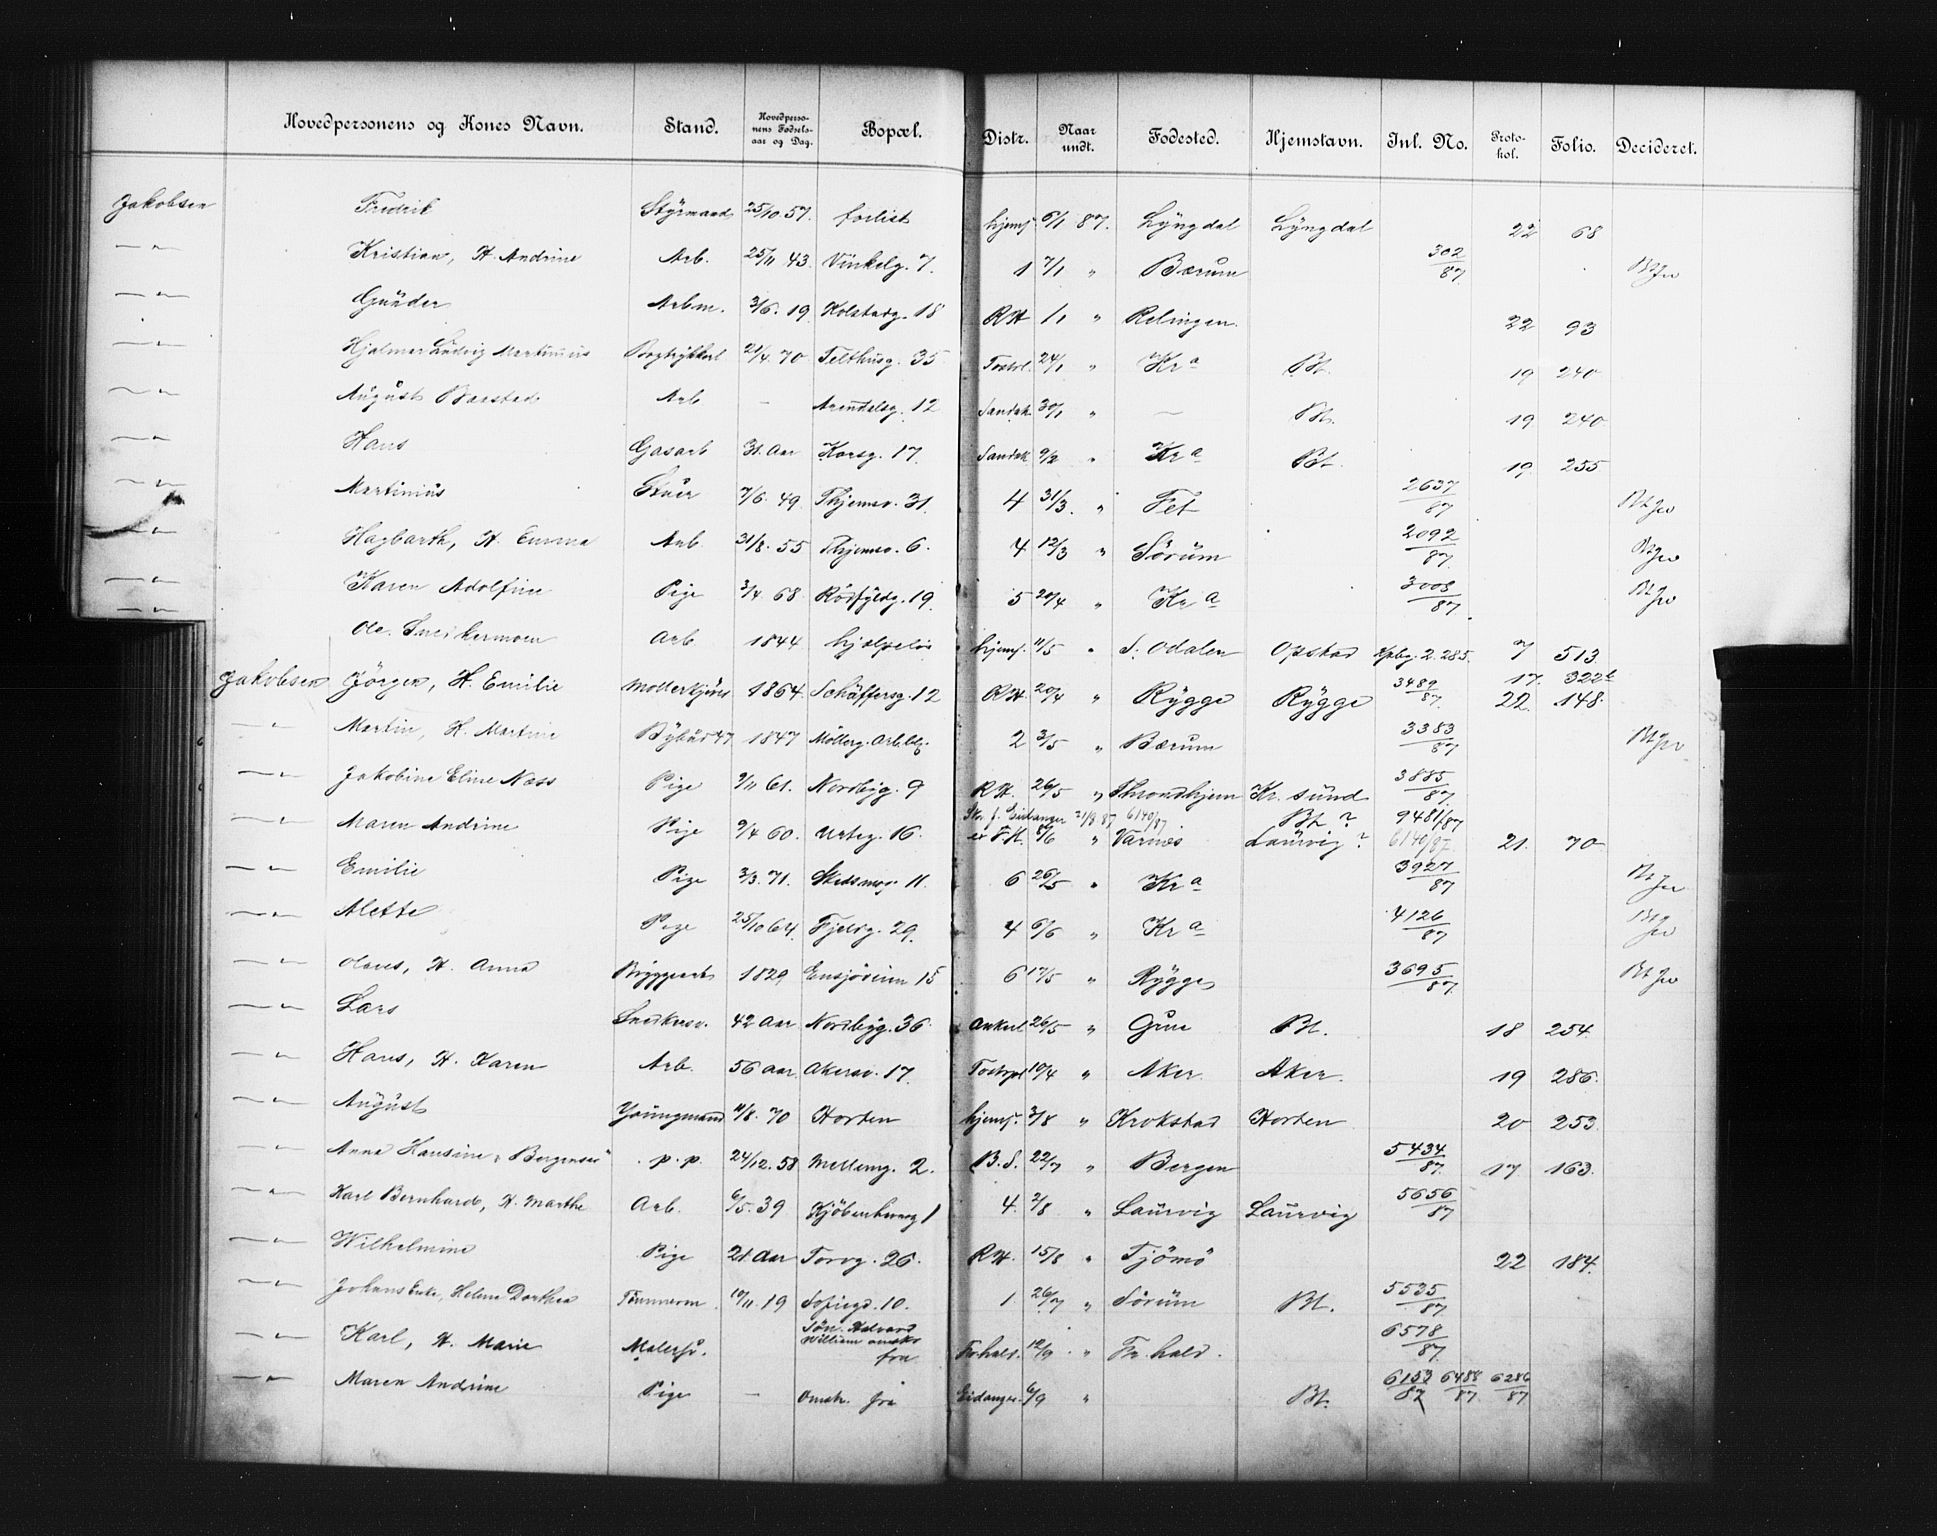 Hovedpersonens og Kones Navn. Stand. Hovedperso-nens Fødsels-aar og Dag. Bopæl. Distr. Naar undt. Fødested. Hjemstavn. Inl. No. Proto-kol. Folio. Decideret.
Jakobsen Fredrik Styrmand 25/10 57. forlist hjemf. 6/1 87. Lyngdal Lyngdal 22 68
— " — Kristian, H. Andrine Arb. 25/11 43. Vinkelg. 7. 1 7/1 " Bærum 302/87
— " — Gunder Arbm. 3/6. 19 Kolstadg. 18 RH 1/1 " Relingen. 22 93
— " — Hjalmar Ludvig Martinius Bogtrykkerl 21/4 70 Telthusg. 35 24/1 " Kra Bt. 19 240
— " — August Barstad Arb — Arendalsg. 12 Sandak 30/1 " — Bt. 19 240
— " — Hans Gasarb 31. Aar Korsg. 17. Sandak 9/2 " Kra Bt. 19 255
— " — Martinius 7/6. 49. Thjemsv. 31. 4 31/3. " Fet 2637/87
— " — Hagbarth, H. Emma Arb. 31/8. 55 Thjemsv. 6. 4 12/3 " Sørum 2092/87
— " — Karen Adolfine Pige 3/4 68 Rødfyldg. 19. 5 20/4 " Kra 3008/87
— " — Ole Snekkermoen Arb 1844 hjælpeløs hjemf. 11/5 " S. Odalen Opstad 2.285. 7 513
Jakobsen Jørgen, H. Emilie Møllerkjøres 1864 Schäffersg. 12 RH. 20/4 " Rygge Rygge 3489/87. 17. 322 22. 148.
— " — Martin, H. Martine Bybud 47 1847 Møllerg. Arb.blg. 2 3/5 " Bærum 3383/87
— " — Jakobine Eline Næss Pige 9/11 61. Nordbyg. 9 RH. 26/5 " Throndhjem Kr. sund 3885/87.
— " — Maren Andrine Pige 9/4 60. Urteg. 16. Skr. f. Eidanger 21/8 87 6140/87 Bt ? 9481/87
FK. 8/6 " Varnes Laurvig? 6140/87. 21. 70
— " — Emilie Pige 3/3. 71. Skedsmog. 11. 6 26/5 " Kra 3927/87
— " — Alette Pige 25/10 64. Fjeldg. 29. 4 6/6 " Kra 4126/87
— " — Olaus, H. Anna Bryggearb 1829 Ensjøvien 15 6 17/5 " Rygge 3695/87.
— " — Lars Snedkersv. 42 Aar Nordbyg. 36. Ankerl 26/5 " Gjun Bt. 18 254.
— " — Hans, H. Karen Arb. 56 Aar. Akersv. 17. 19/4 " Aker. Aker. 19 286.
— " — August Youngmand 11/8. 70 Horten hjemf. 3/8 " Krokstad Horten 20 253.
— " — Anna Hansine "Bergenser" p. p. 24/12. 58 Mellemg. 2. B.S. 22/7 " Bergen 5434/87. 17 163.
— " — Karl Bernhard, H. Marthe Arb. 6/5. 39 Kjøbenhavng 1 4. 2/8 " Laurvig Laurvig 5656/87
— " — Wilhelmine Pige 21 Aar Torvg. 26. RH. 15/8 " Tjømø 22 184.
— " — Johans Enke, Helene Dorthea Tømmerm. 19/11. 19 Sofiegd. 10. 1. 26/7 " Sørum Bt. 5535/87
— " — Karl, H. Marie Malersv. Søn. Halvard William omskr fra Fr.hald. 12/9 " Fr. hald. 6578/87.
— " — Maren Andrine Pige — Omskr. fra Eidanger. 6/9 " Bt. 6153/87 6488/87. 6286/87